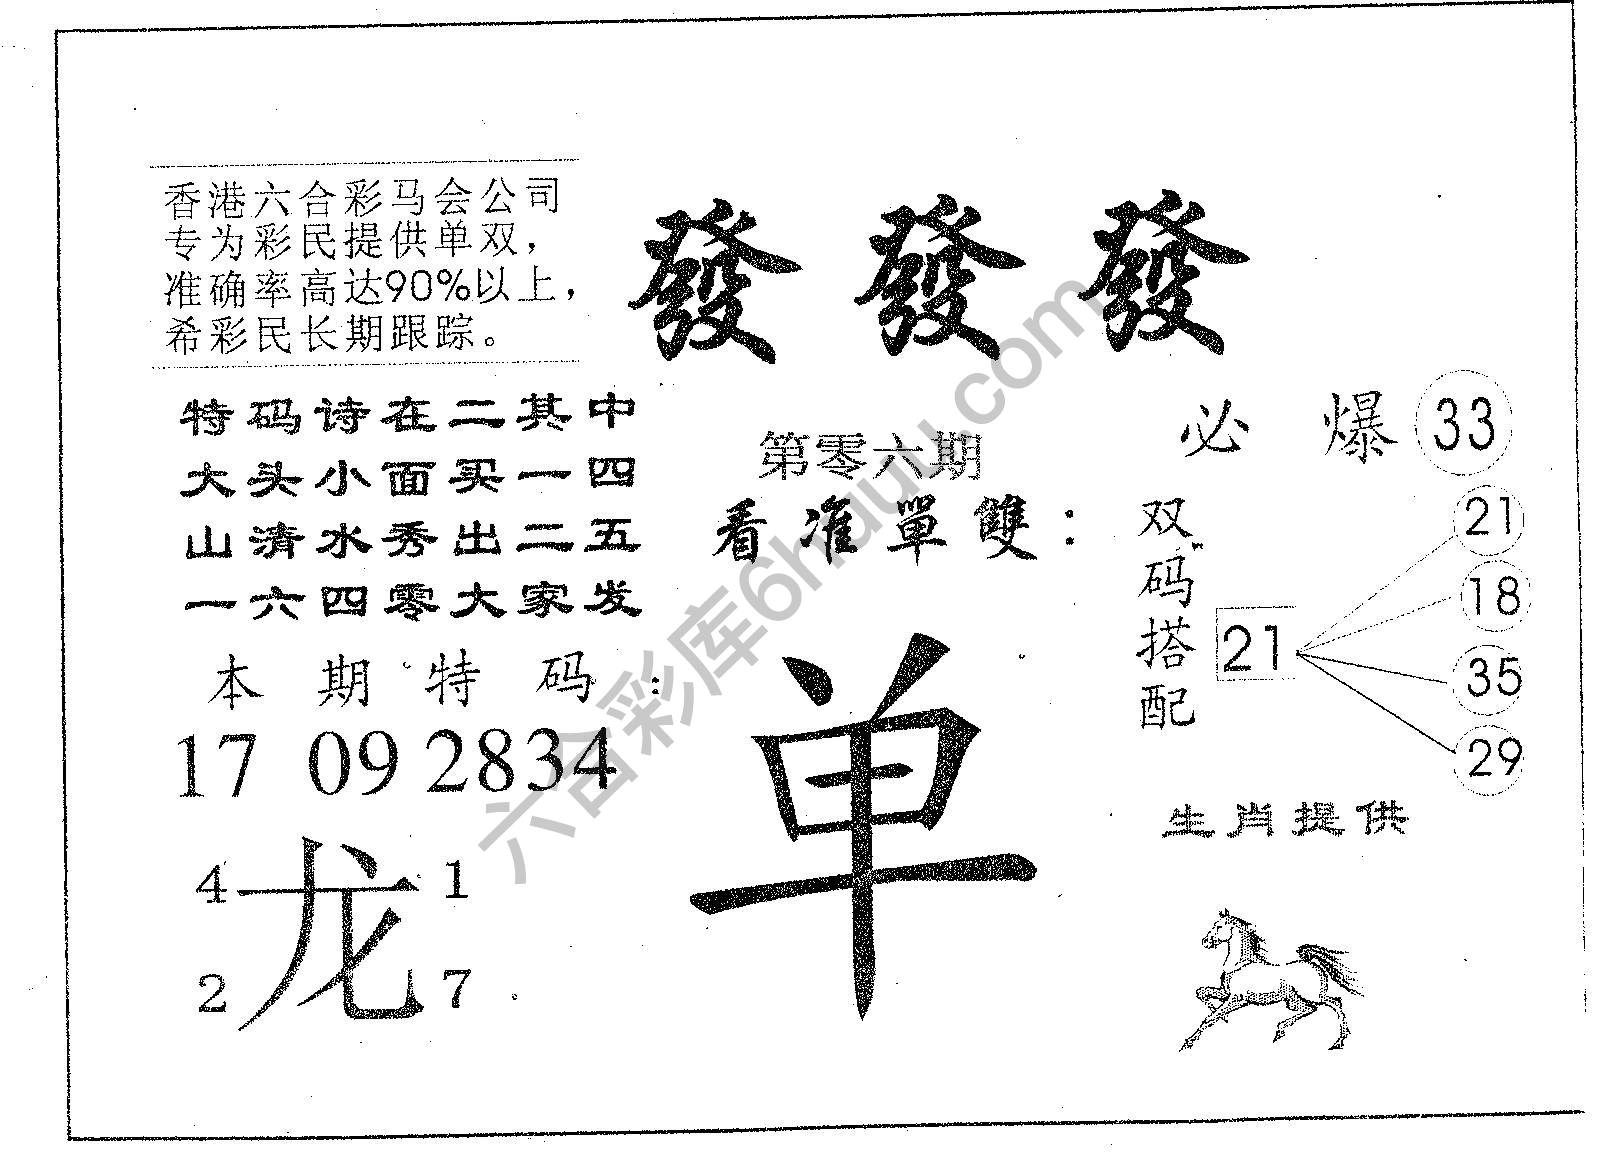 香港六合彩马会公司
专为彩民提供单双，
准确率高达90%以上，
希彩民长期跟踪。
發 發 發
特码诗在二其中
大头小面买一四
山清水秀出二五
一六四零大家发
第零六期
看准單雙：
必 爆 33
双码搭配
21
21
18
35
29
本期特码：
17 09 28 34
龙
4 1
2 7
单
生肖提供
六合彩库6hauu.com